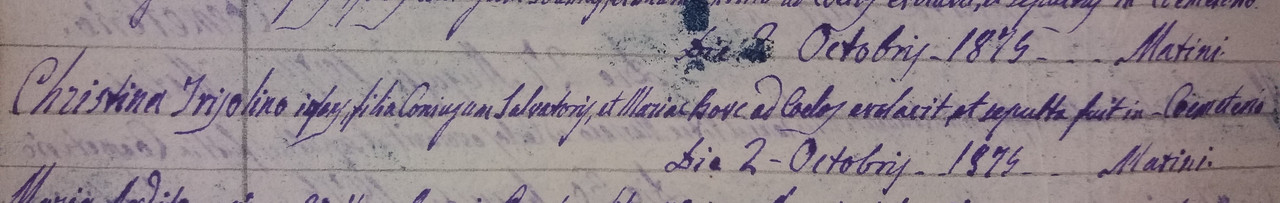 ad Coelos evolavit, et sepultus in Coemeterio.
Die 2 Octobris - 1875 - . . Matini
Christina Trisolino infans, filia Coniugum Salvatoris, et Mariae Bove ad Coelos evolavit, et sepulta fuit in - Coemeterio
Die 2 - Octobris - 1875 - . . Matini
Maria